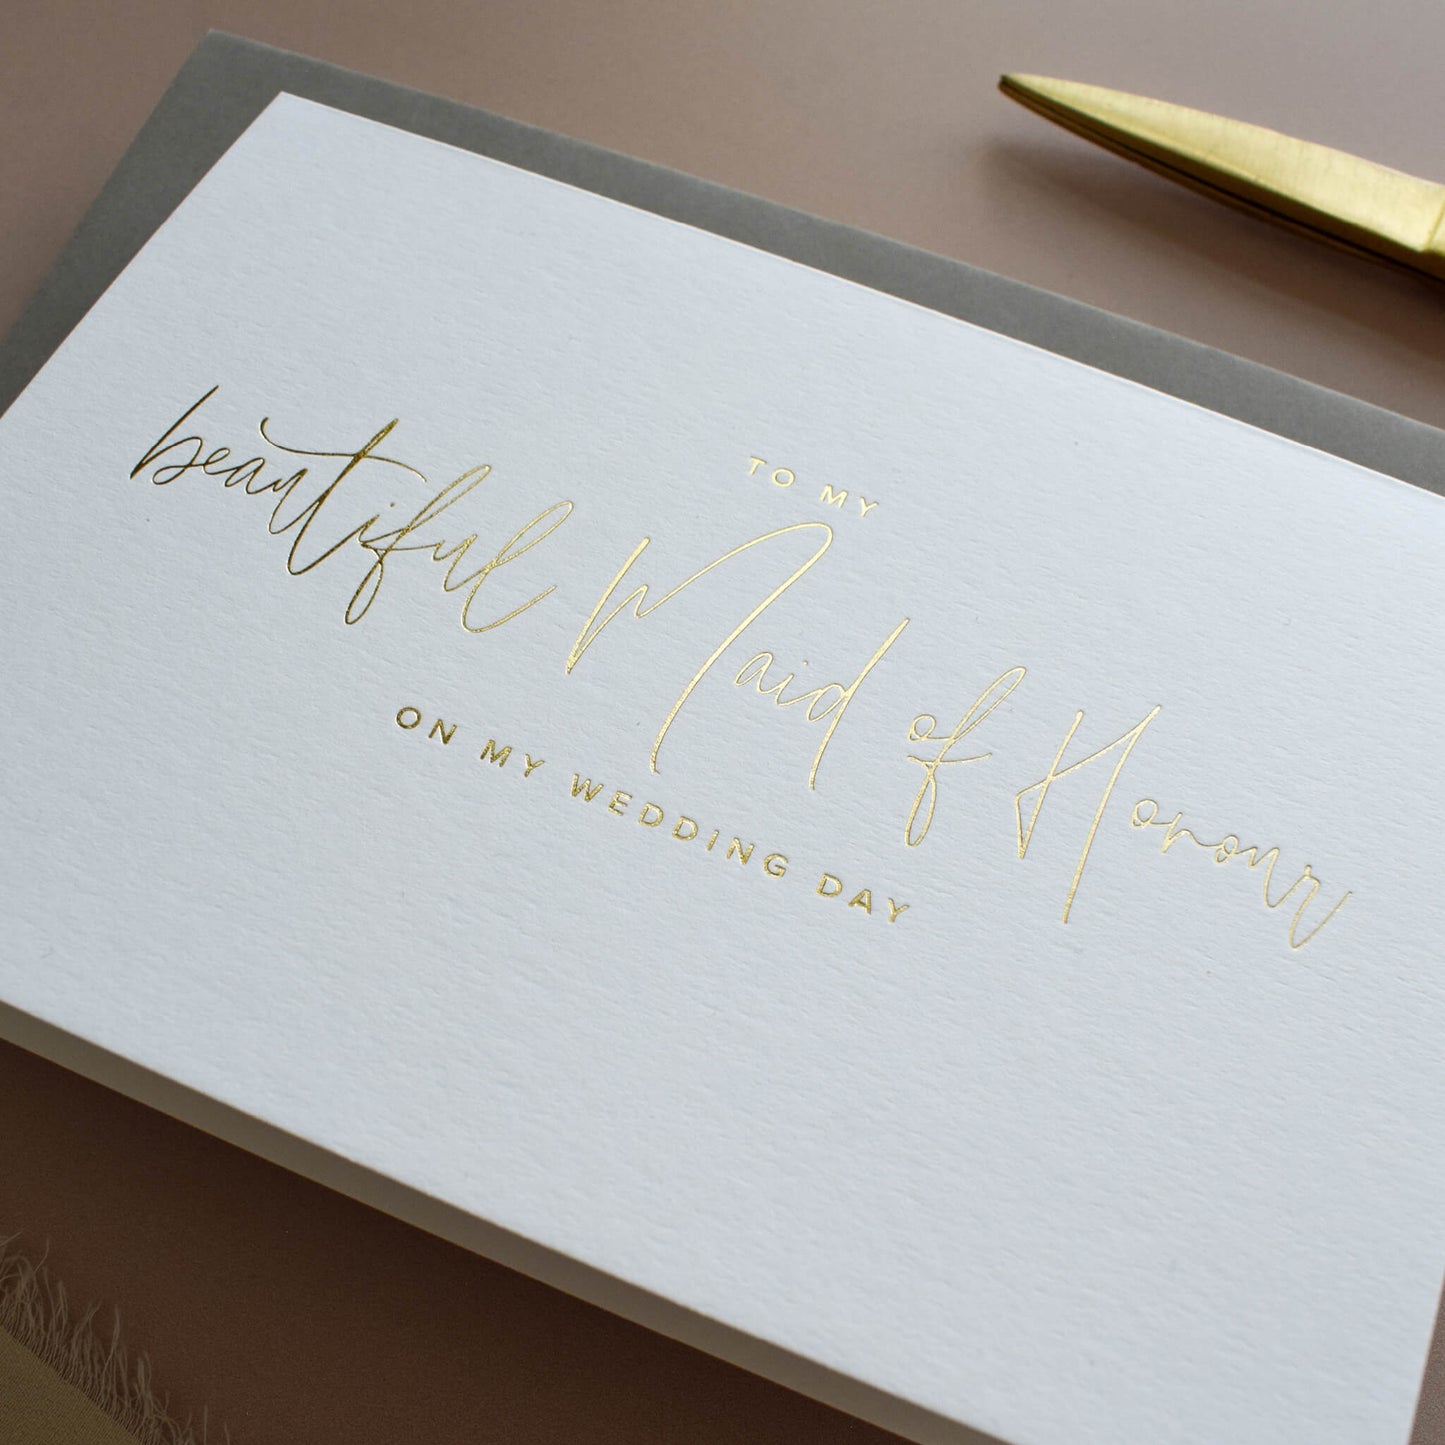 TO MY
beautiful Maid of Honour
ON MY WEDDING DAY